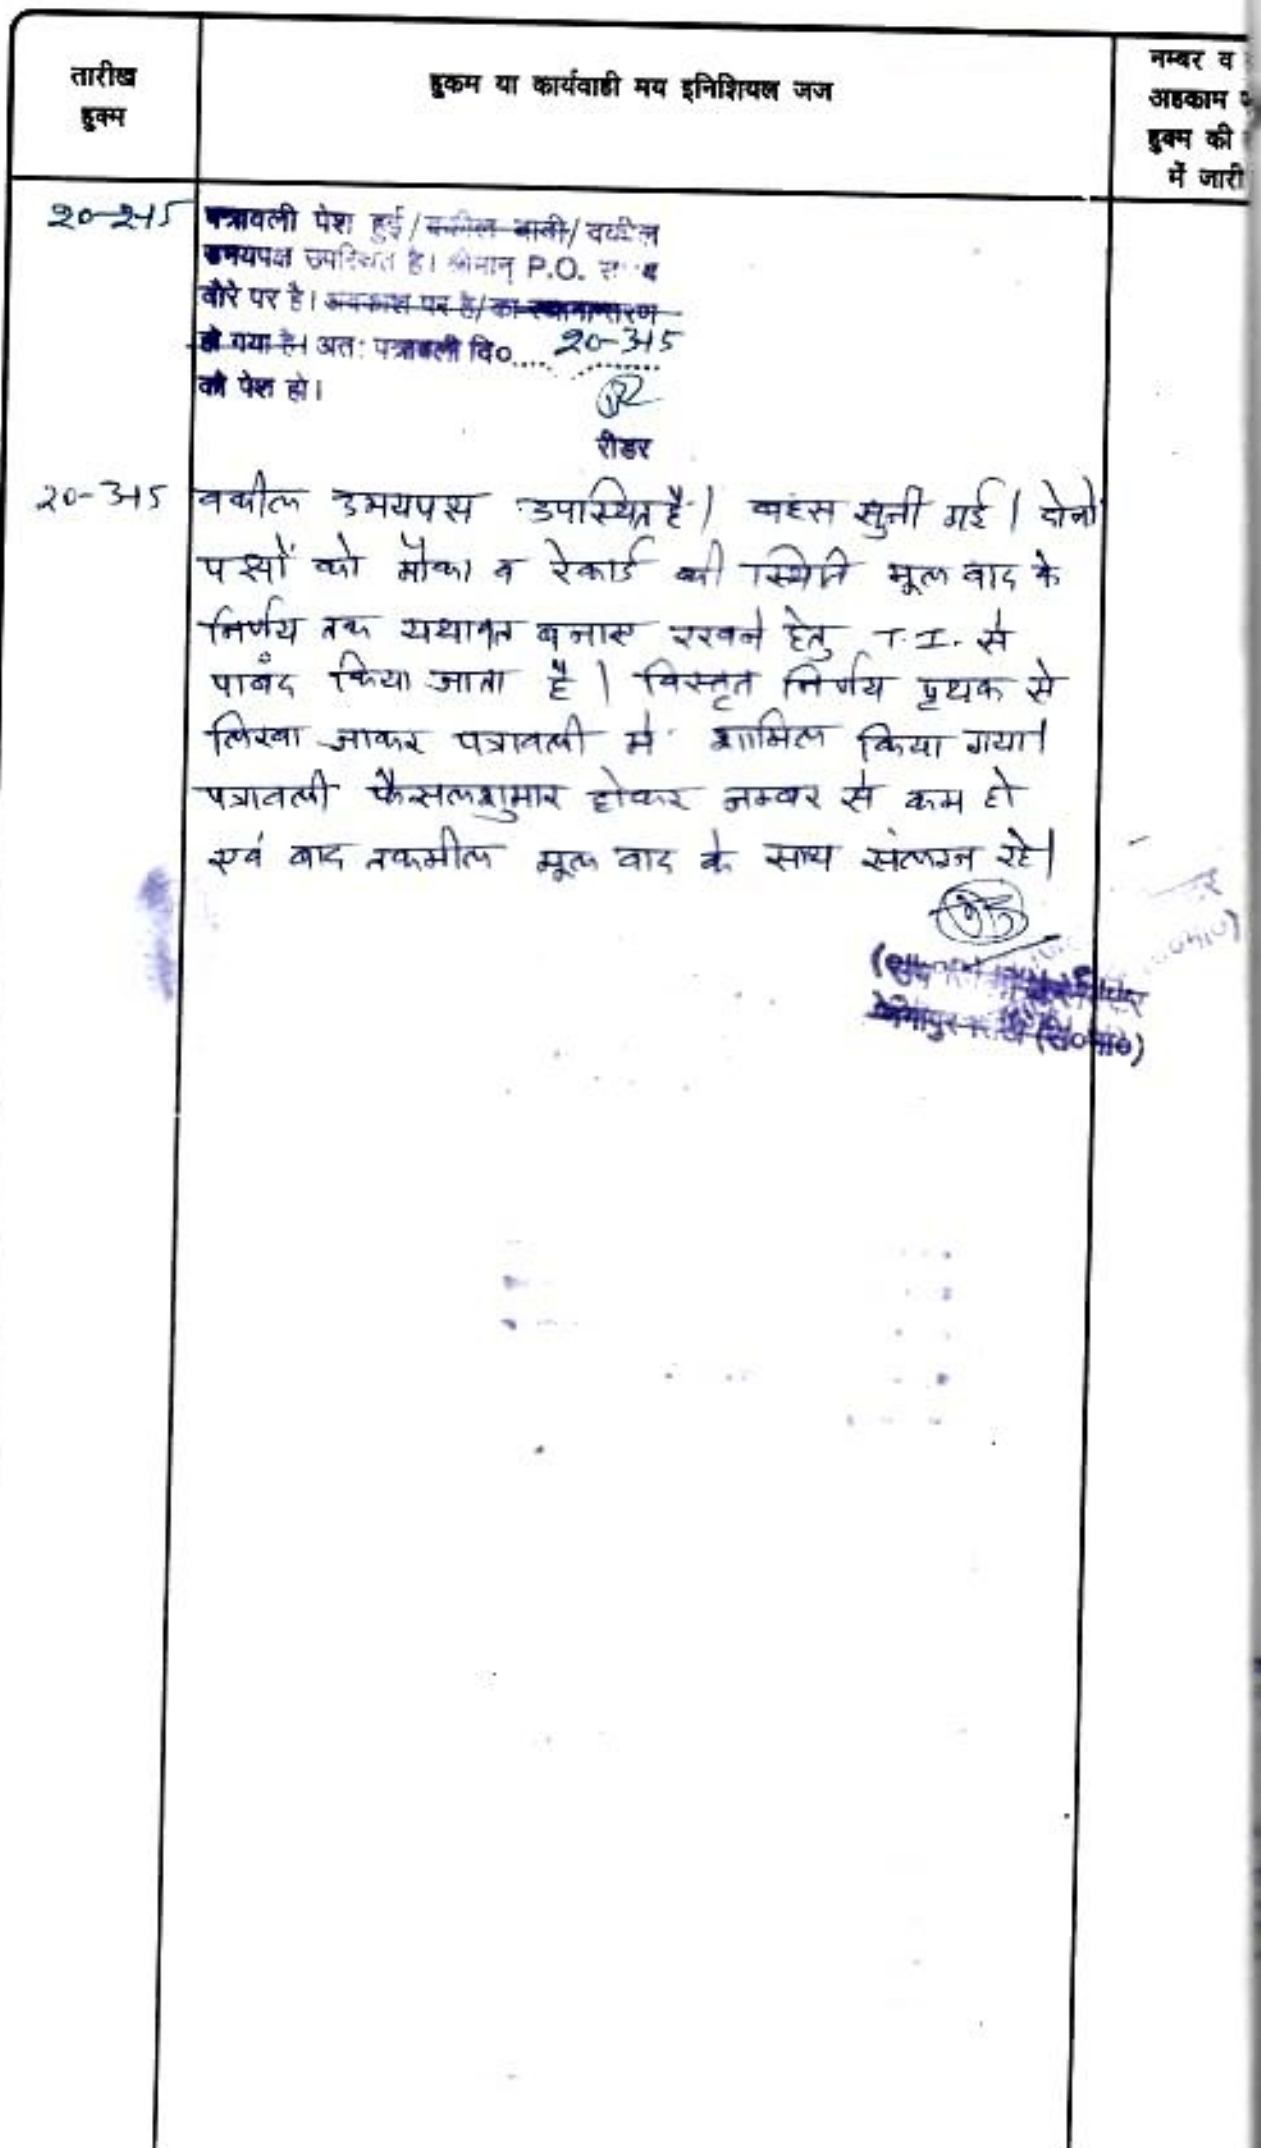 तारीख
हुक्म
हुकम या कार्यवाही मय इनिशियल जज
नम्बर व
अहकाम
हुक्म की
में जारी
20-2-15
पत्रावली पेश हुई / वकील वादी / वकील
उभयपक्ष उपस्थित है। श्रीमान् P.O.
दौरे पर है। अवकाश पर है/ का स्थानान्तरण
हो गया है। अतः पत्रावली दि०.... 20-3-15
को पेश हो।
रीडर
20-3-15
वकील उभयपक्ष उपस्थित है। बहस सुनी गई। दोनो
पक्षों को मौका व रेकार्ड की स्थिति मूल वाद के
निर्णय तक यथावत बनाए रखने हेतु T.I. से
पाबंद किया जाता है। विस्तृत निर्णय पृथक से
लिखा जाकर पत्रावली में शामिल किया गया।
पत्रावली फैसलशुमार होकर नम्बर से कम हो
एवं बाद तकमील मूल वाद के साथ संलग्न रहे।